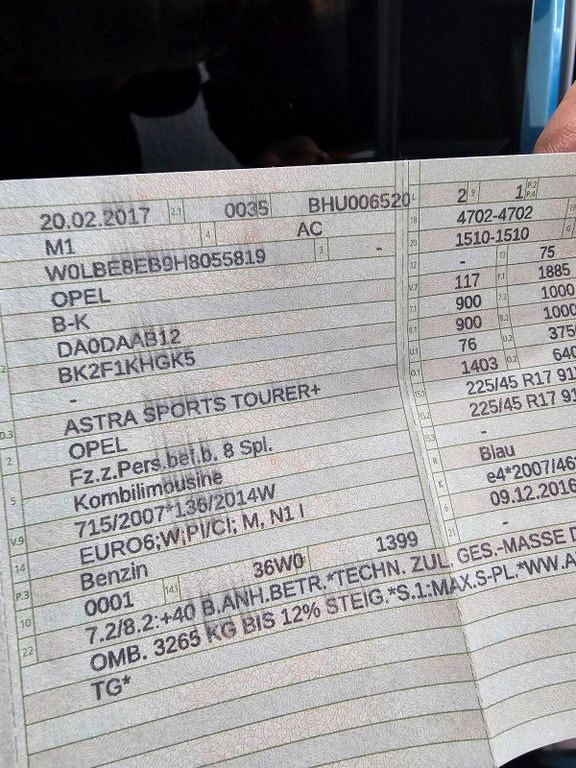 20.02.2017 2.1 0035 BHU006520 2 9 1 P.2 P.4
M1 4 AC 18 4702-4702
W0LBE8EB9H8055819 3 - 20 1510-1510 G
OPEL 12 - 13 75
B-K V.7 117 F.1 1885
DA0DAAB12 7.1 900 7.2 1000
BK2F1KHGK5 8.1 900 8.2 1000
- U.1 76 U.2 375
D.3 ASTRA SPORTS TOURER+ O.1 1403 O.2 640
2 OPEL 15.1 225/45 R17 91
5 Fz.z.Pers.bef.b. 8 Spl. 15.2 225/45 R17 91
Kombilimousine 15.3 -
V.9 715/2007*136/2014W R Blau
14 EURO6;W,PI/CI; M, N1 I K e4*2007/46
P.3 Benzin 6 09.12.2016
10 0001 14.1 36W0 1399 21 -
22 7.2/8.2:+40 B.ANH.BETR.*TECHN. ZUL. GES.-MASSE
OMB. 3265 KG BIS 12% STEIG.*S.1:MAX.S-PL.*WW.A
TG*